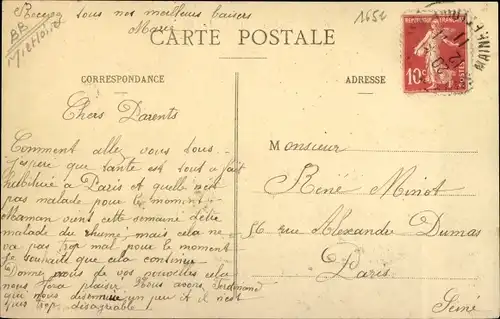 Recevez tous nos meilleurs baisers
Marie
1652
CARTE POSTALE
CORRESPONDANCE
ADRESSE
REPUBLIQUE FRANCAISE
10c
POSTES
MAINE
Chers Parents
Comment allez vous tous
j'espère que tante est tout a fait
habituée a Paris et quelle n'est
pas malade pour le moment.
Maman vient cette semaine d'être
malade du rhume mais cela ne
va pas trop mal pour le moment
je souhaite que cela continue
Donne nous de vos nouvelles cela
nous fera plaisir. Nous avons Ferdinand
qui nous un peu et il n'est
pas trop désagréable !
Monsieur
René Minot
56 rue Alexandre Dumas
Paris
Seine